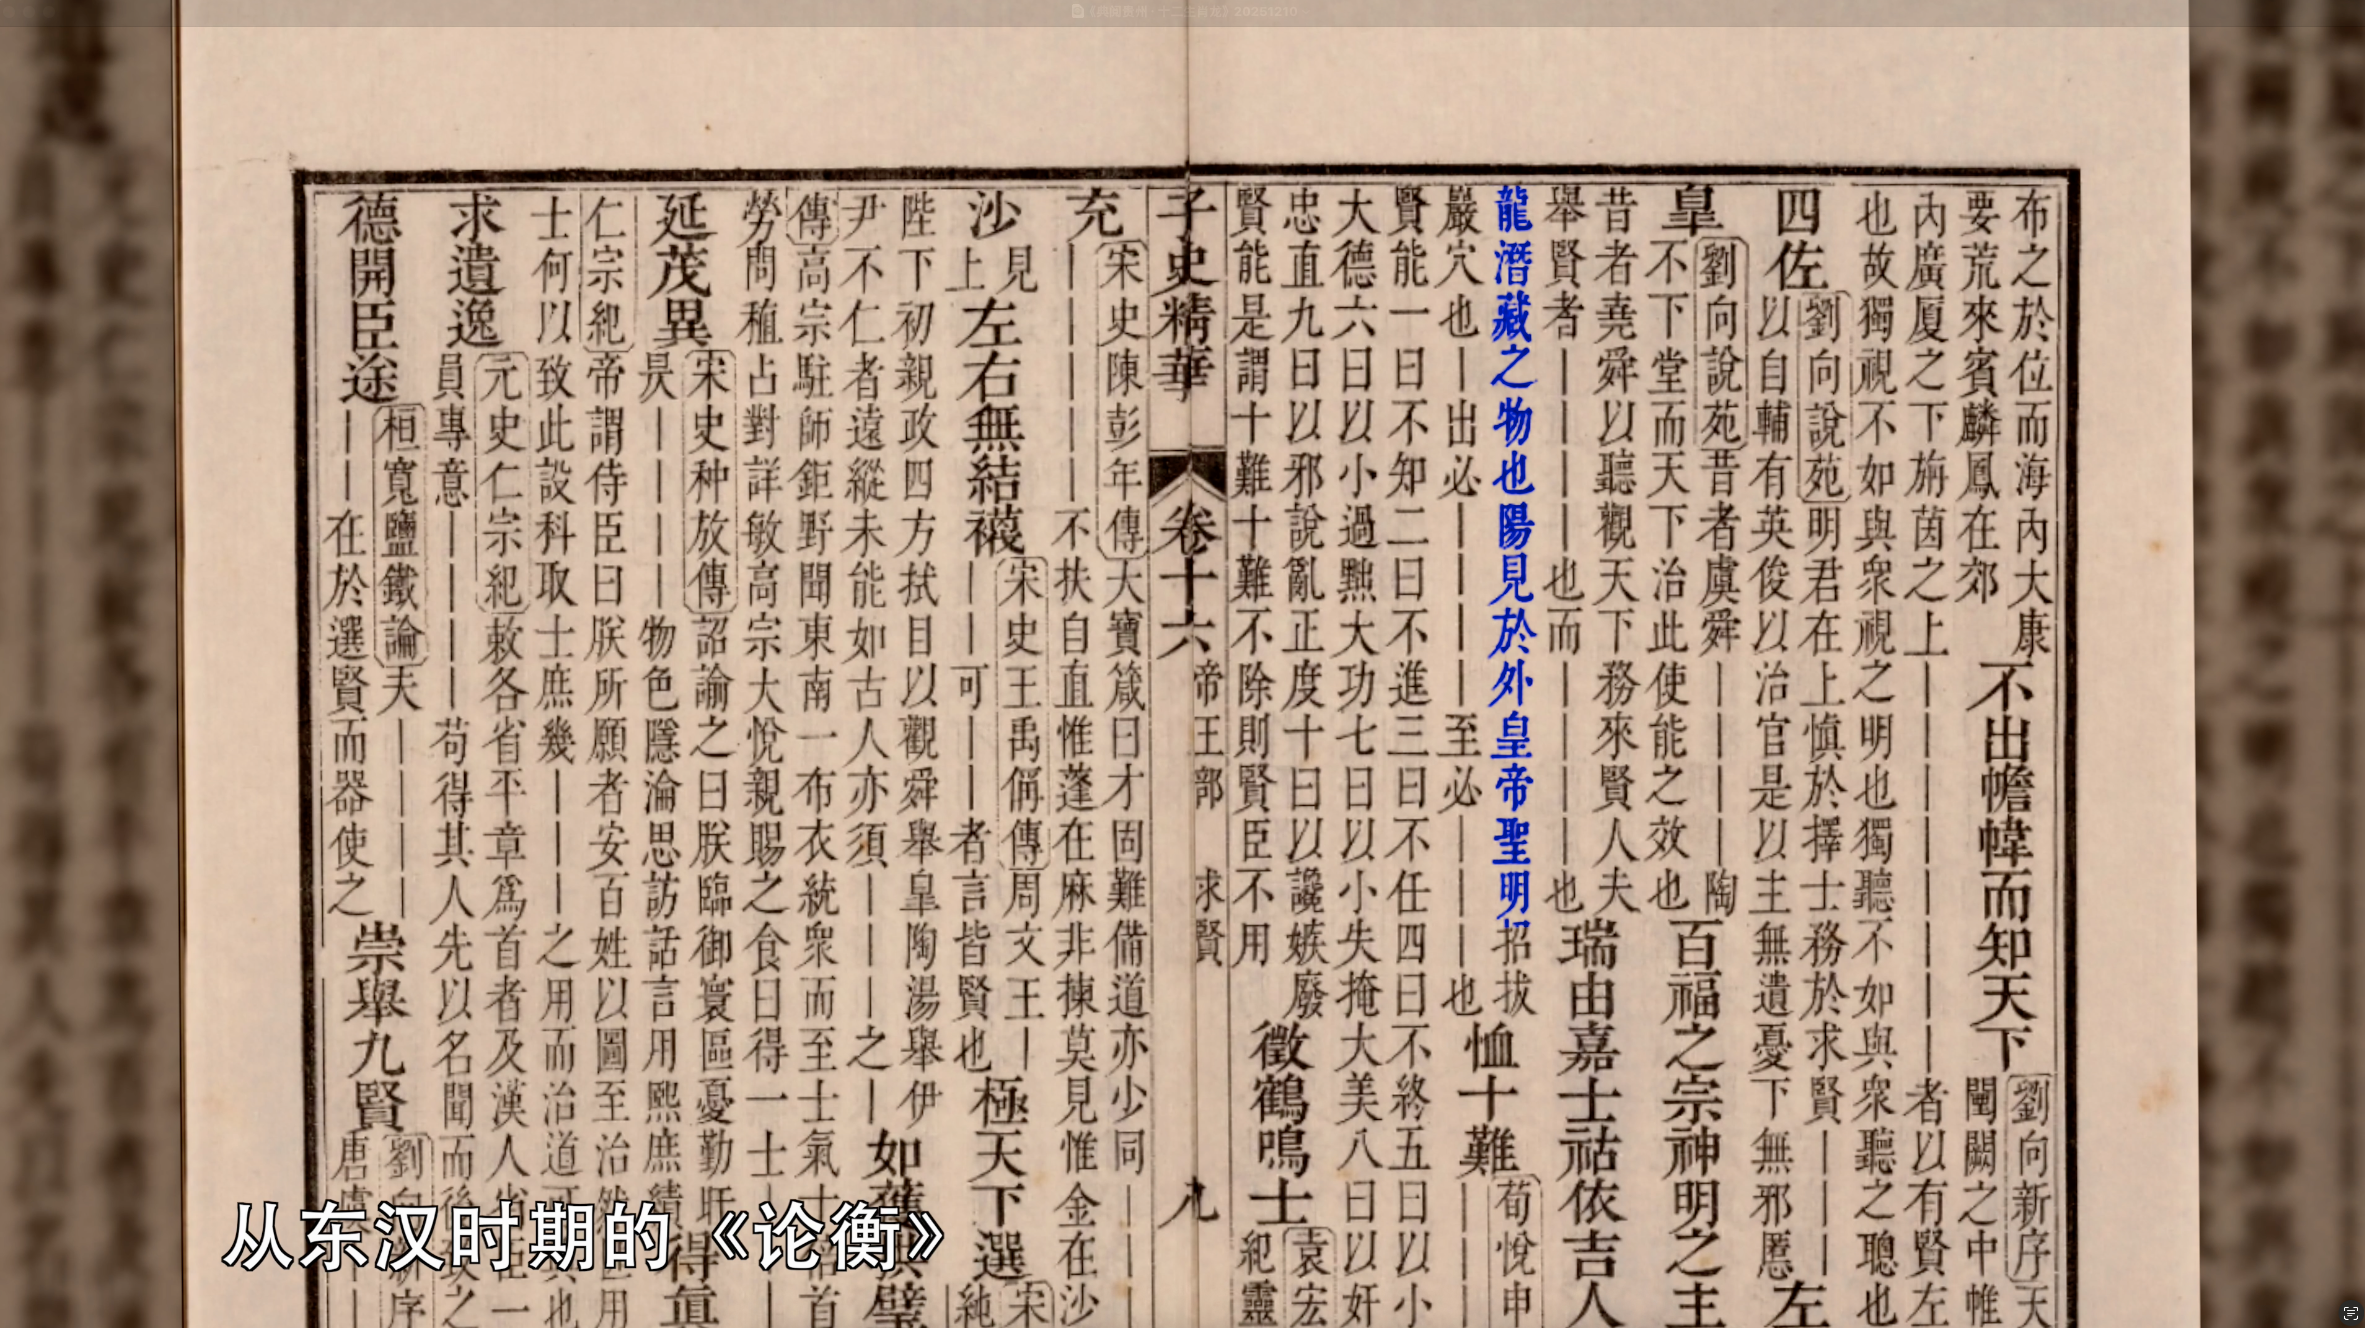 布之於位而海內大康
要荒來賓麟鳳在郊
不出幨幃而知天下
劉向新序天
闉闕之中帷
內廣厦之下旃茵之上||||||||者以有賢左
也故獨視不如與衆視之明也獨聽不如與衆聽之聰也
四佐劉向說苑明君在上愼於擇士務於求賢|||
以自輔有英俊以治官是以主無遺憂下無邪慝
左
皐劉向說苑昔者虞舜||||陶
不下堂而天下治此使能之效也
百福之宗神明之主
昔者堯舜以聽觀天下務來賢人夫
舉賢者|||||也而||||也
瑞由嘉士祜依吉人
龍潛藏之物也陽見於外皇帝聖明招拔
巖穴也|出必||||至必||||也
恤十難
荀悅申
賢能一曰不知二曰不進三曰不任四曰不終五曰以小
大德六曰以小過黜大功七曰以小失掩大美八曰以奸
忠直九曰以邪說亂正度十曰以讒嫉廢
賢能是謂十難十難不除則賢臣不用
徵鶴鳴士
袁宏
紀靈
子史精華 卷十六 帝王部 求賢 九
充宋史陳彭年傳大寶箴曰才固難備道亦少同|||
|||||不扶自直惟蓬在麻非揀莫見惟金在沙
沙見
上
左右無結襪宋史王禹偁傳周文王|
||可||者言皆賢也
極天下選宋
純
陛下初親政四方拭目以觀舜舉皐陶湯舉伊
尹不仁者遠縱未能如古人亦須|||之|
如獲璧
傳高宗駐師鉅野聞東南一布衣統衆而至士氣十首
勞問稙占對詳敏高宗大悅親賜之食曰得一士|
延茂異宋史种放傳詔諭之曰朕臨御寰區憂勤旰
炅||||物色隱淪思訪話言用熙庶績
得眞
仁宗紀帝謂侍臣曰朕所願者安百姓以圖至治用
士何以致此設科取士庶幾|||之用而治道可也
求遺逸元史仁宗紀敕各省平章爲首者及漢人省一
員專意|||||苟得其人先以名聞而後之
德開臣途桓寬鹽鐵論天||||
||在於選賢而器使之
崇舉九賢劉向新序
唐虞||
从东汉时期的《论衡》